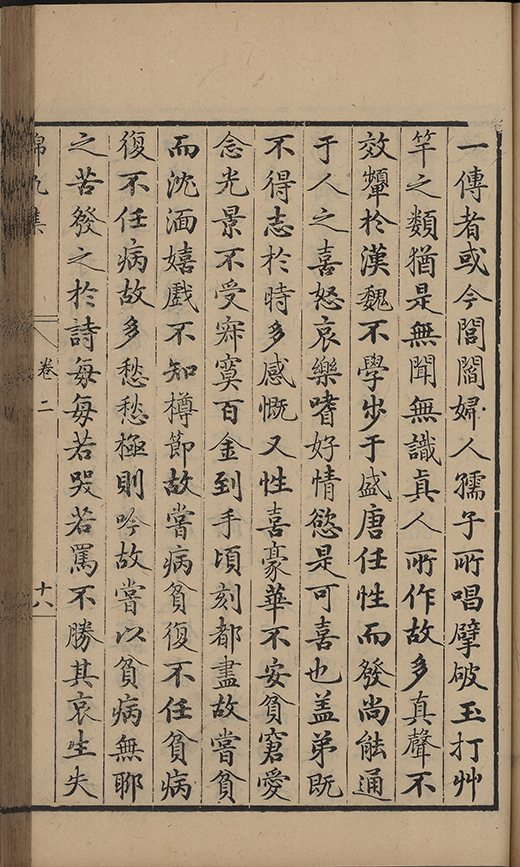 一傳者或今閭閻婦人孺子所唱擘破玉打艸
竿之類猶是無聞無識真人所作故多真聲不
效顰於漢魏不學步于盛唐任性而發尚能通
于人之喜怒哀樂嗜好情慾是可喜也蓋弟既
不得志於時多感慨又性喜豪華不安貧窘愛
念光景不受寂寞百金到手頃刻都盡故嘗貧
而沈湎嬉戲不知樽節故嘗病貧復不任貧病
復不任病故多愁愁極則吟故嘗以貧病無聊
之苦發之於詩每每若哭若罵不勝其哀生失
錦帆集
卷二
十六